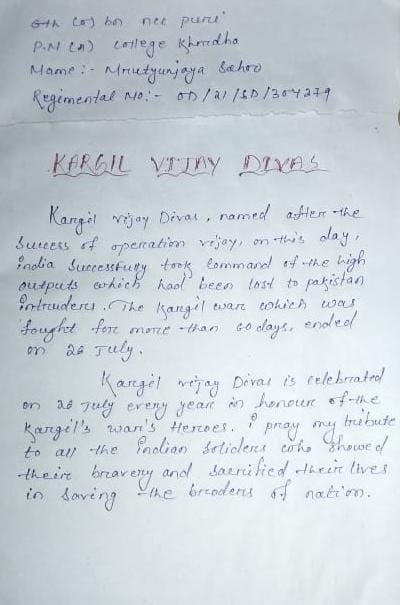 6th (O) bn ncc puri
P.N (A) college Khordha
Name :- Mrutyunjaya Sahoo
Regimental No:- OD/21/SD/304279
KARGIL VIJAY DIVAS
Kargil vijay Divas, named after the
Success of operation vijay, on this day,
india Successfully took command of the high
outputs which had been lost to pakistan
intruders. The Kargil war which was
fought for more than 60 days, ended
on 26 July.
Kargil vijay Divas is celebrated
on 26 July every year in honour of the
Kargil's war's Heroes. i pray my tribute
to all the indian Soliders who showed
their bravery and sacrified their lives
in saving the broders of nation.